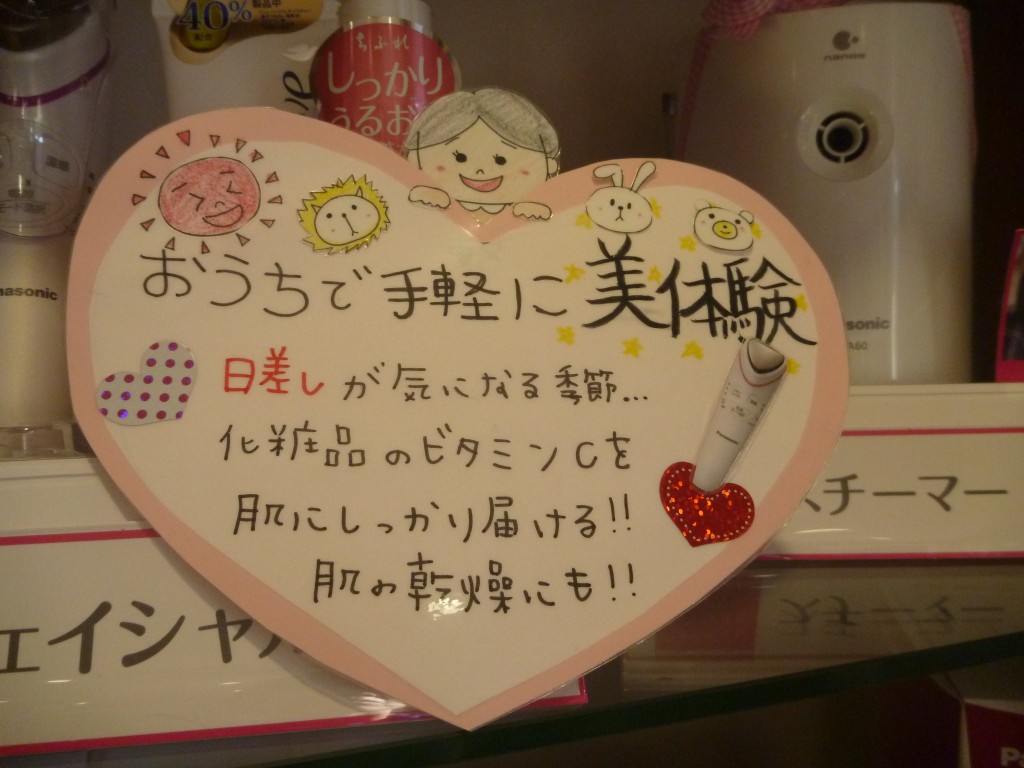 40%
配合
製品中
ちふれ
しっかり
うるお
nanoe
nasonic
sonic
おうちで手軽に美体験
日差しが気になる季節...
化粧品のビタミンCを
肌にしっかり届ける!!
肌の乾燥にも!!
スチーマー
ェイシャル